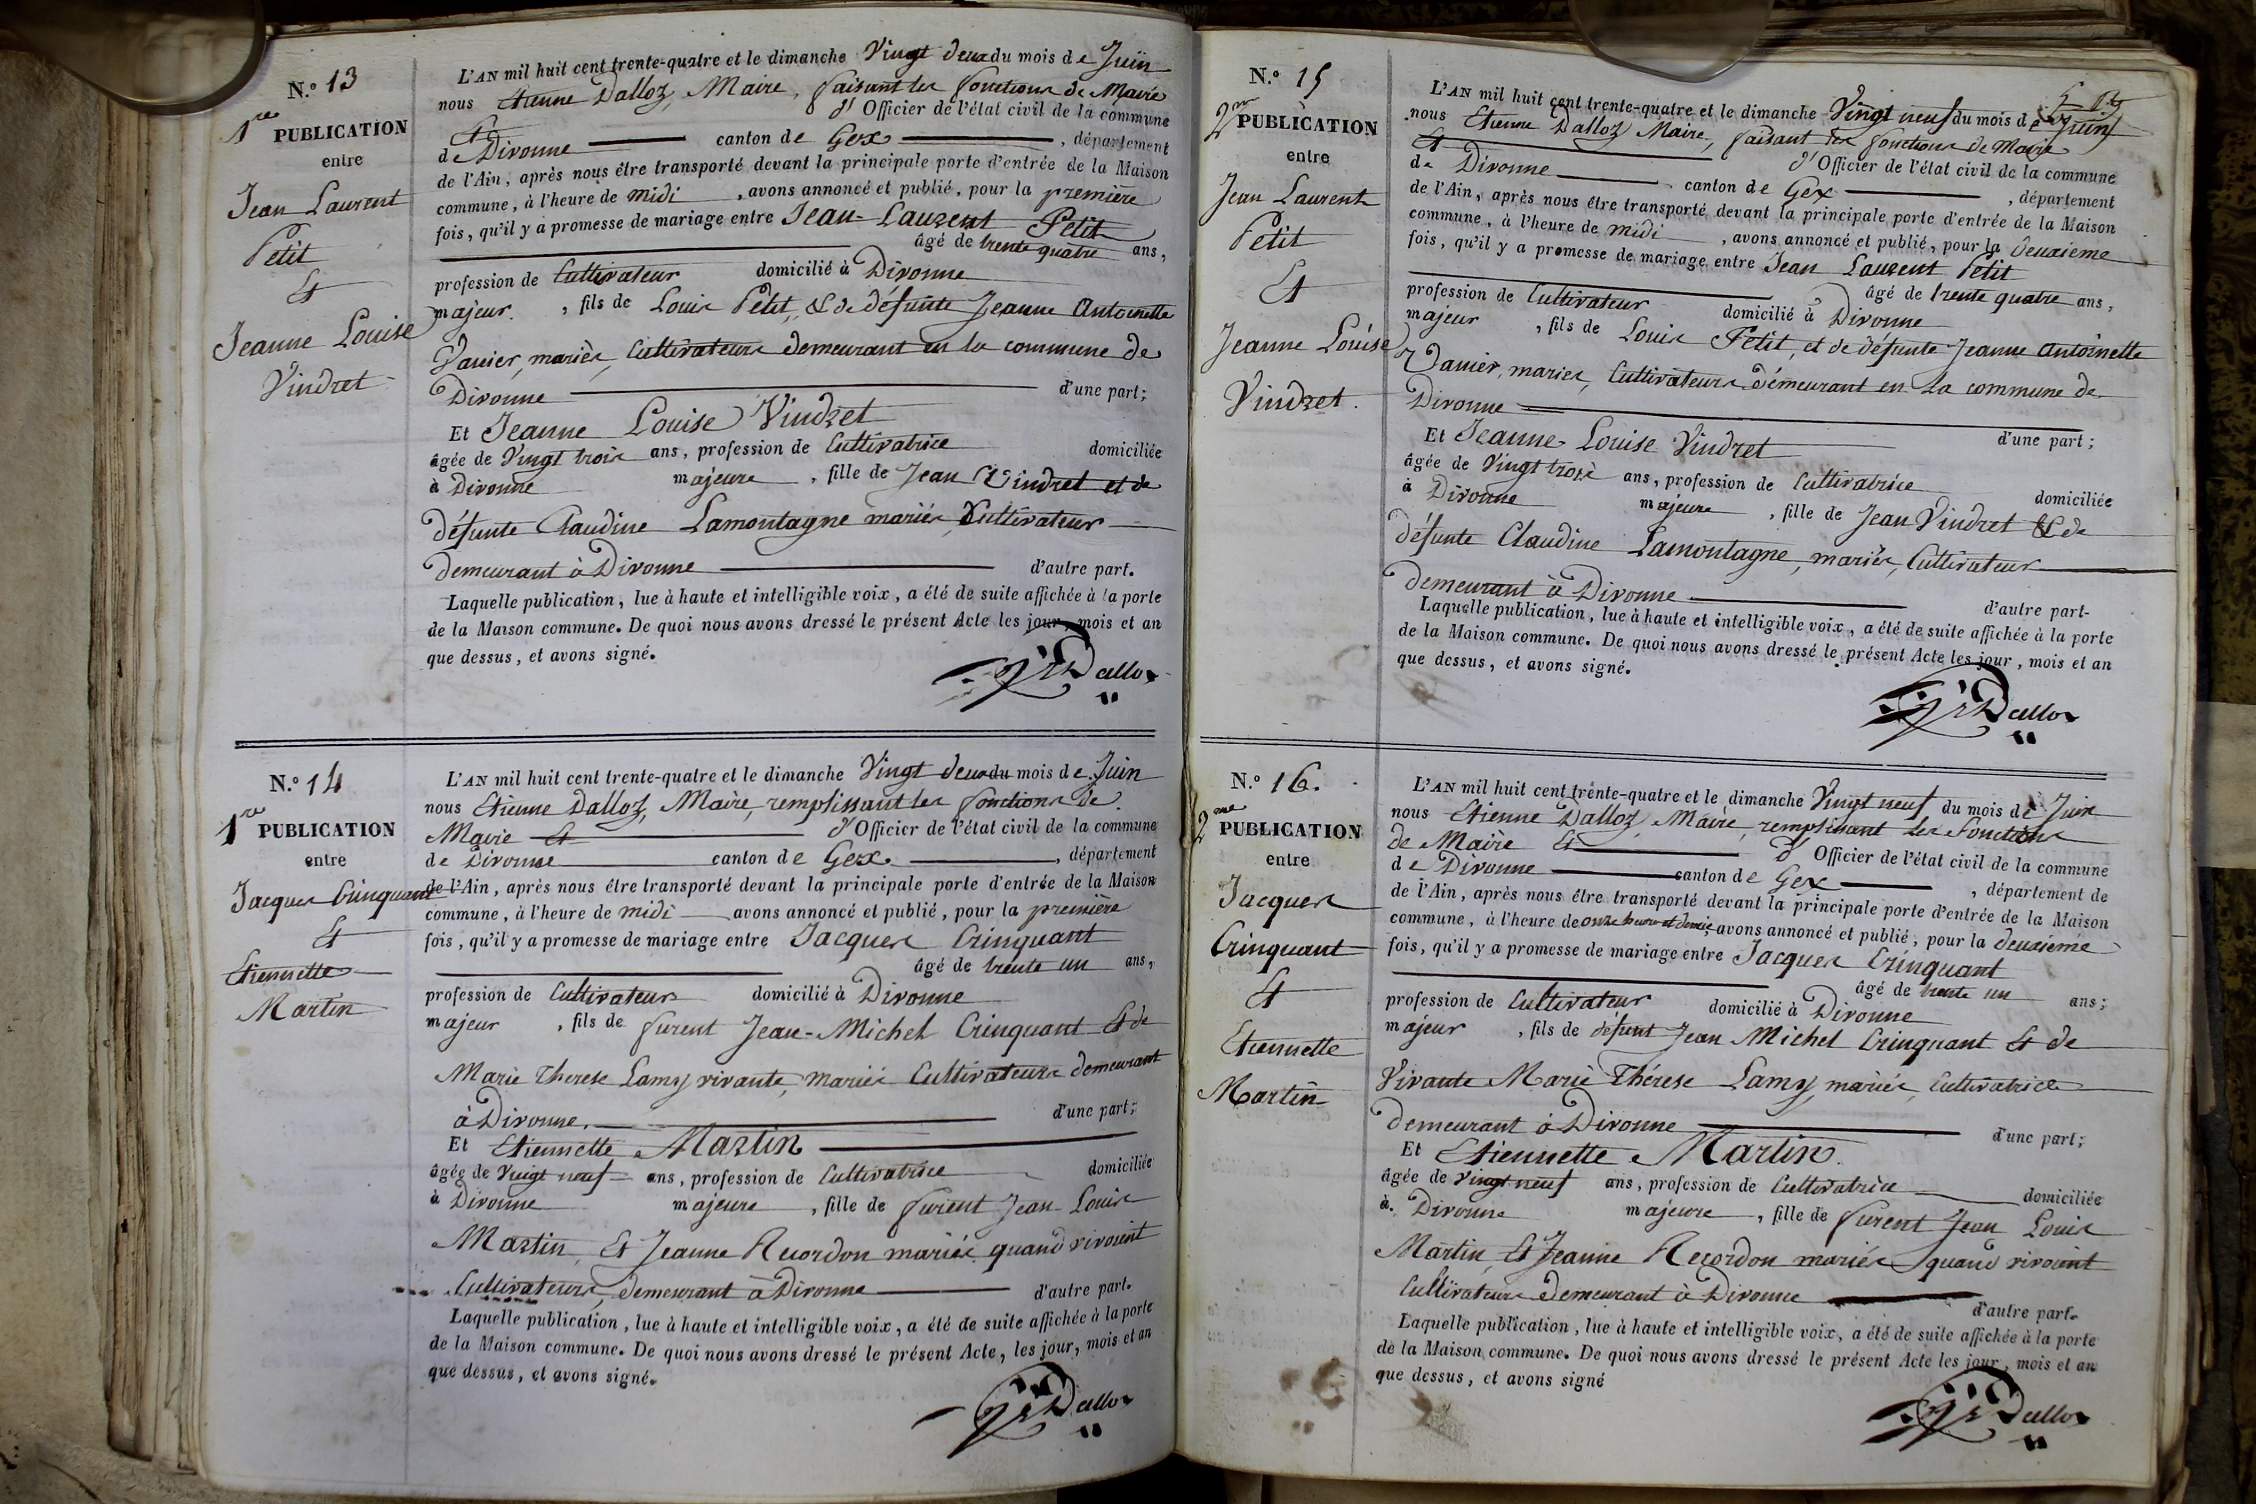 N.º 13
1re PUBLICATION
entre
Jean Laurent
Petit
Et
Jeanne Louise
Vindret
L'AN mil huit cent trente-quatre et le dimanche Vingt deux du mois de Juin
nous Etienne Dalloz, Maire, faisant les fonctions de Mairie
Et d'Officier de l'état civil de la commune
de Divonne canton de Gex, département
de l'Ain, après nous être transporté devant la principale porte d'entrée de la Maison
commune, à l'heure de midi, avons annoncé et publié, pour la première
fois, qu'il y a promesse de mariage entre Jean-Laurent Petit
âgé de trente quatre ans,
profession de Cultivateur domicilié à Divonne
majeur, fils de Louis Petit, & de défunte Jeanne Antoinette
mariés, Cultivateurs demeurant en la commune de
Divonne d'une part;
Et Jeanne Louise Vindret
âgée de Vingt trois ans, profession de Cultivatrice domiciliée
à Divonne majeure, fille de Jean Vindret et de
défunte Claudine Lamontagne mariés, Cultivateur
demeurant à Divonne d'autre part.
Laquelle publication, lue à haute et intelligible voix, a été de suite affichée à la porte
de la Maison commune. De quoi nous avons dressé le présent Acte les jour, mois et an
que dessus, et avons signé.
Dalloz
N.º 14
1re PUBLICATION
entre
Jacques Crinquant
Et
Etiennette
Martin
L'AN mil huit cent trente-quatre et le dimanche Vingt deux du mois de Juin
nous Etienne Dalloz, Maire, remplissant les fonctions de
Maire Et d'Officier de l'état civil de la commune
de Divonne canton de Gex, département
de l'Ain, après nous être transporté devant la principale porte d'entrée de la Maison
commune, à l'heure de midi avons annoncé et publié, pour la première
fois, qu'il y a promesse de mariage entre Jacques Crinquant
âgé de trente un ans,
profession de Cultivateur domicilié à Divonne
majeur, fils de furent Jean-Michel Crinquant Et de
Marie Therese Lamy vivante, mariés Cultivateurs demeurant
à Divonne. d'une part;
Et Etiennette Martin
âgée de Vingt neuf ans, profession de Cultivatrice domiciliée
à Divonne majeure, fille de furent Jean-Louis
Martin, Et Jeanne Recordon mariés quand vivoient
Cultivateurs, demeurant à Divonne d'autre part.
Laquelle publication, lue à haute et intelligible voix, a été de suite affichée à la porte
de la Maison commune. De quoi nous avons dressé le présent Acte, les jour, mois et an
que dessus, et avons signé.
Dalloz
N.º 15
2me PUBLICATION
entre
Jean Laurent
Petit
Et
Jeanne Louise
Vindret.
L'AN mil huit cent trente-quatre et le dimanche Vingt neuf du mois de Juin
nous Etienne Dalloz Maire, faisant les fonctions de Mairie
Et d'Officier de l'état civil de la commune
de Divonne canton de Gex, département
de l'Ain, après nous être transporté devant la principale porte d'entrée de la Maison
commune, à l'heure de midi, avons annoncé et publié, pour la deuxieme
fois, qu'il y a promesse de mariage entre Jean Laurent Petit
âgé de trente quatre ans,
profession de Cultivateur domicilié à Divonne
majeur, fils de Louis Petit, et de défunte Jeanne Antoinette
mariés, Cultivateurs demeurant en la commune de
Divonne
d'une part;
Et Jeanne-Louise Vindret
âgée de Vingt trois ans, profession de Cultivatrice
domiciliée
à Divonne majeure, fille de Jean Vindret & de
défunte Claudine Lamontagne, mariés, Cultivateur
demeurant à Divonne
d'autre part.
Laquelle publication, lue à haute et intelligible voix, a été de suite affichée à la porte
de la Maison commune. De quoi nous avons dressé le présent Acte les jour, mois et an
que dessus, et avons signé.
Dalloz
N.º 16.
2me PUBLICATION
entre
Jacques
Crinquant
Et
Etiennette
Martin
L'AN mil huit cent trente-quatre et le dimanche Vingt neuf du mois de Juin
nous Etienne Dalloz, Maire, remplissant les fonctions
de Maire Et d'Officier de l'état civil de la commune
de Divonne canton de Gex, département de
de l'Ain, après nous être transporté devant la principale porte d'entrée de la Maison
commune, à l'heure de onze heures et demie, avons annoncé et publié, pour la deuxieme
fois, qu'il y a promesse de mariage entre Jacques Crinquant
âgé de trente un ans;
profession de Cultivateur domicilié à Divonne
majeur, fils de défunt Jean Michel Crinquant Et de
Vivante Marie Thérese Lamy, mariés, Cultivatrice
demeurant à Divonne d'une part;
Et Etiennette Martin.
âgée de Vingt neuf ans, profession de Cultivatrice domiciliée
à Divonne majeure, fille de furent Jean Louis
Martin, Et Jeanne Recordon mariés quand vivoient
Cultivateurs demeurant à Divonne
d'autre part.
Laquelle publication, lue à haute et intelligible voix, a été de suite affichée à la porte
de la Maison commune. De quoi nous avons dressé le présent Acte les jour, mois et an
que dessus, et avons signé
Dalloz